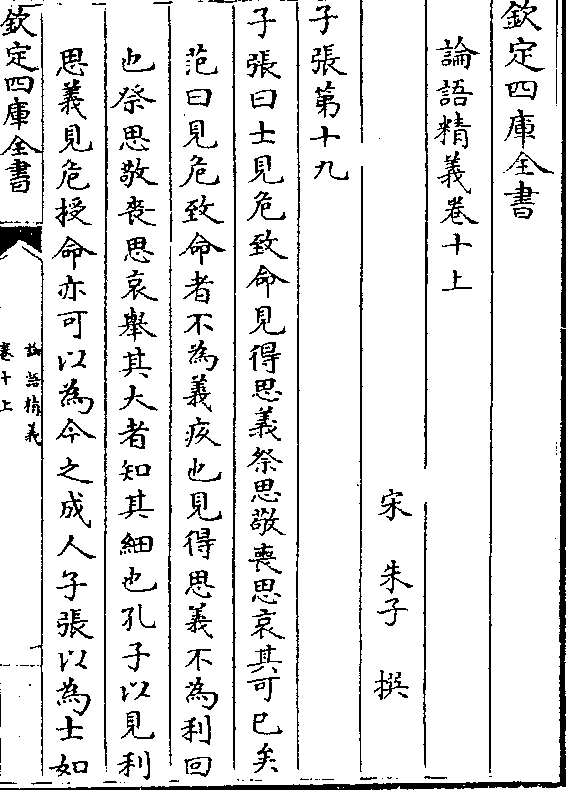 欽定四庫全書
論語精義卷十上
宋 朱子 撰
子張第十九
子張曰士見危致命見得思義祭思敬喪思哀其可已矣
范曰見危致命者不為義疚也見得思義不為利回
也祭思敬喪思哀舉其大者知其細也孔子以見利
思義見危授命亦可以為今之成人子張以為士如
欽定四庫全書
論語精義
卷十上